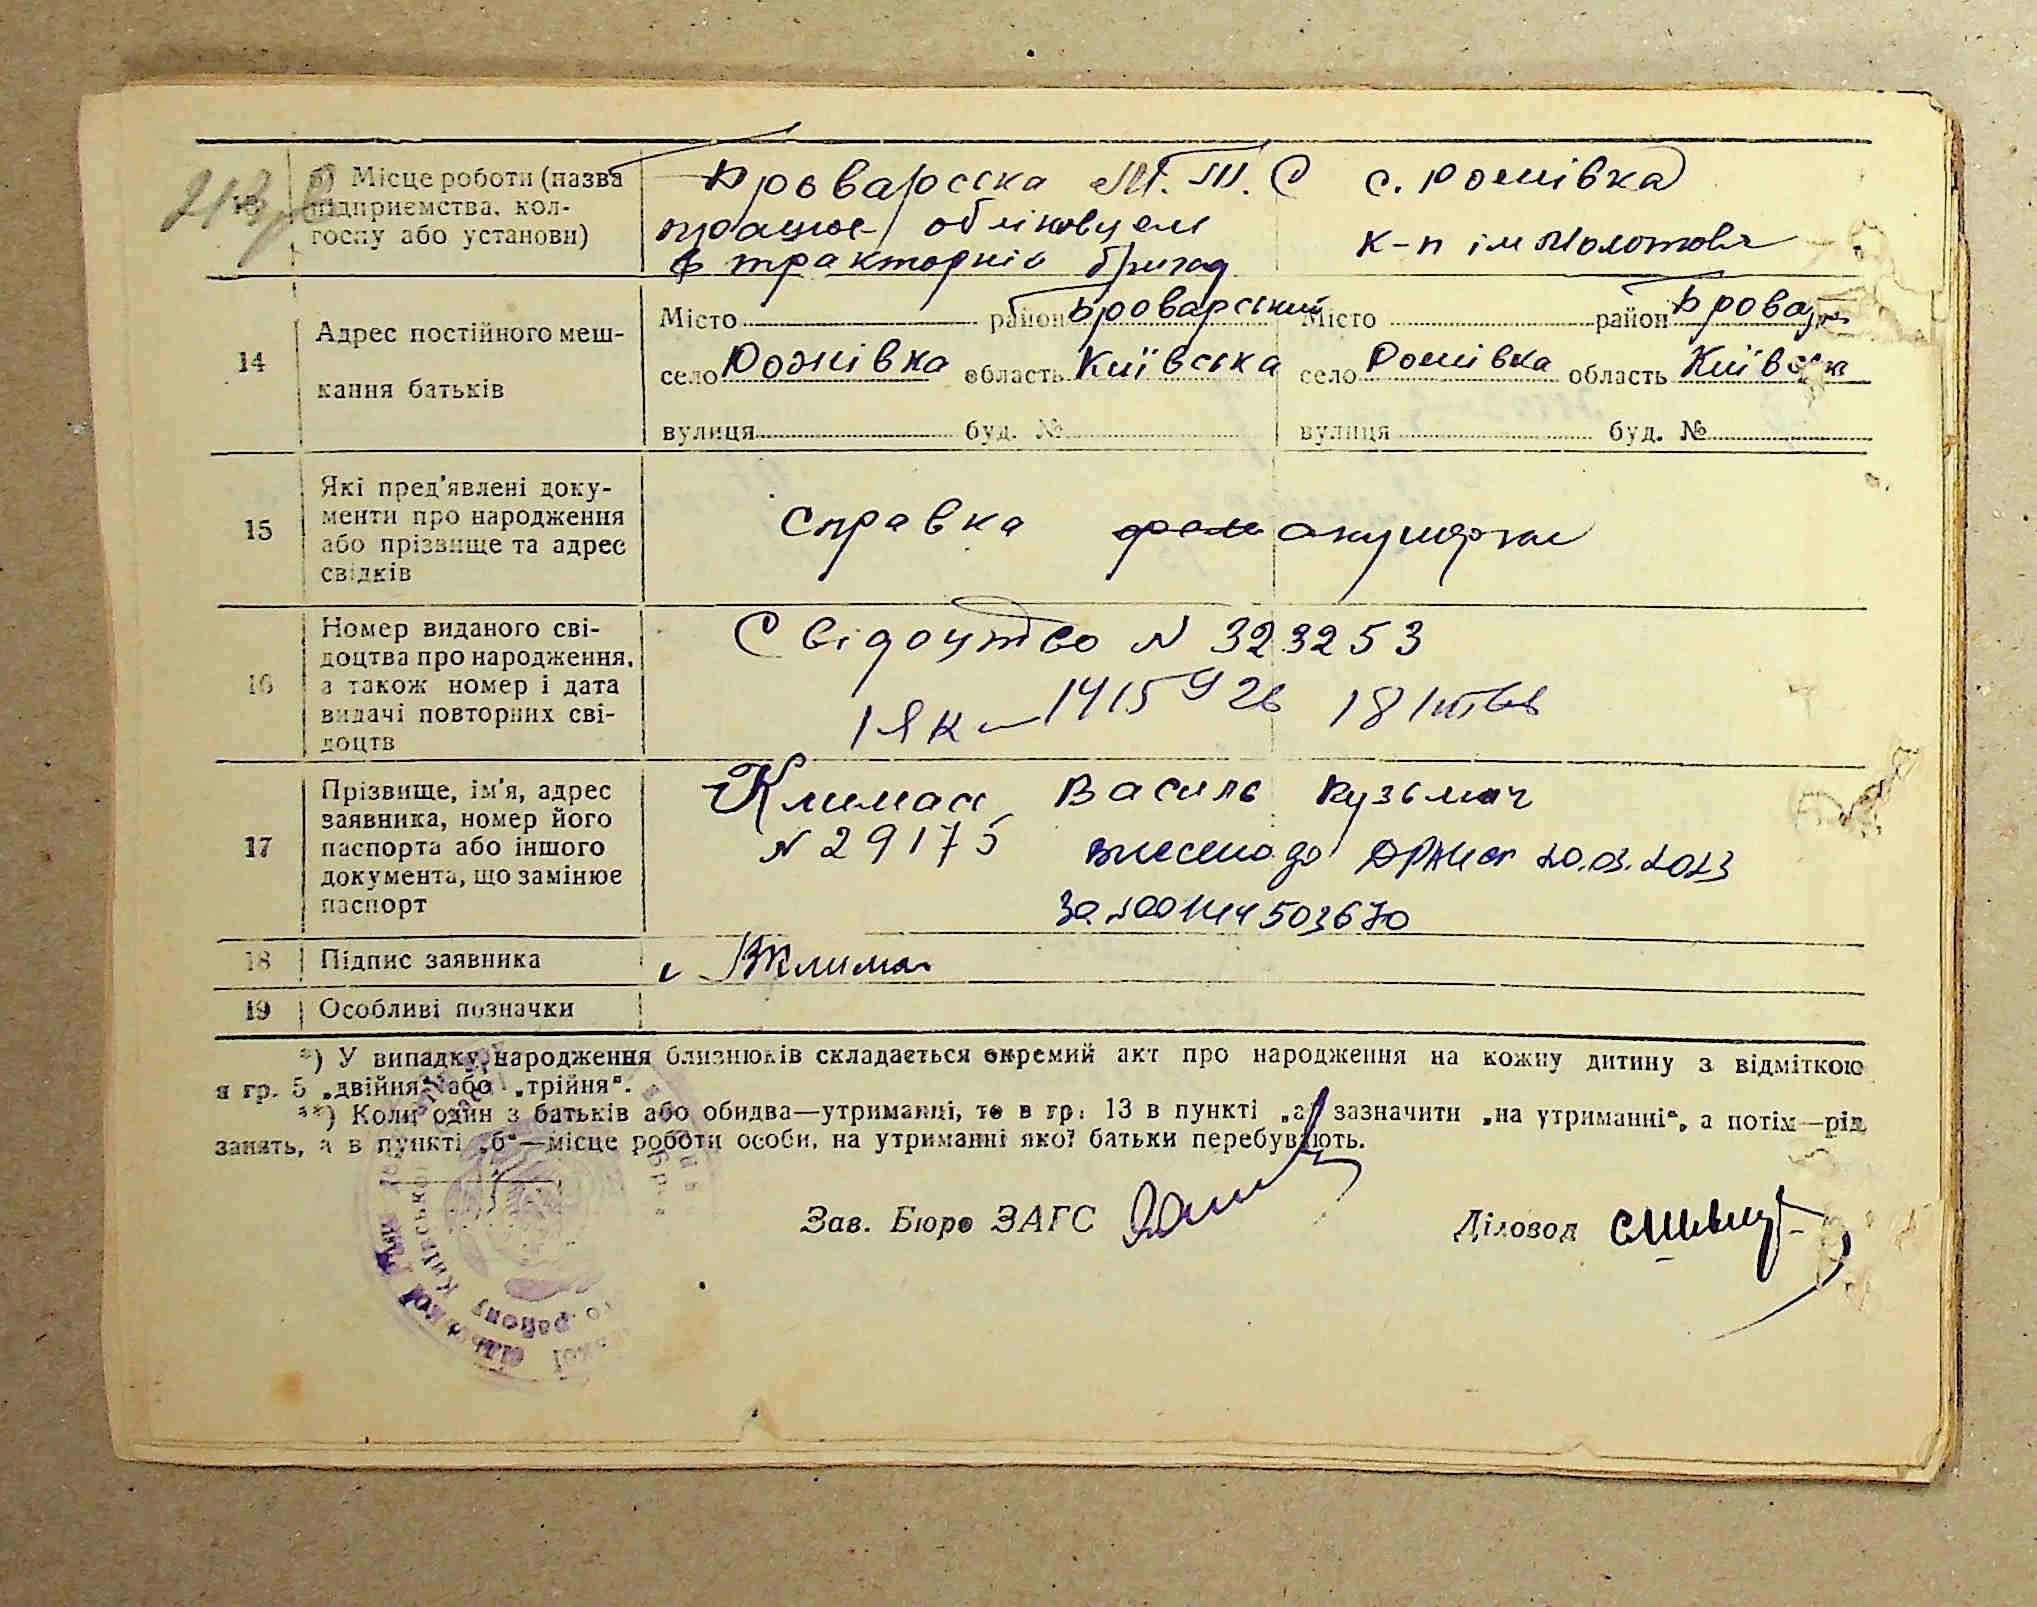 б) Місце роботи (назва підприємства, колгоспу або установи)
Броварсска М.Т.С с. Рожівка
працює обліковцем к-п ім Молотова
в тракторній бригад
14 Адрес постійного мешкання батьків
Місто район Броварський Місто район Бровар
село Рожівка область Київська село Рожівка область Київська
вулиця буд. № вулиця буд. №
15 Які пред'явлені документи про народження або прізвище та адрес свідків
Справка акушерки
16 Номер виданого свідоцтва про народження, а також номер і дата видачі повторних свідоцтв
Свідоцтво N 323253
17 Прізвище, ім'я, адрес заявника, номер його паспорта або іншого документа, що замінює паспорт
Климас Василь Кузьмич
N 29175 внесено до ДРАЦСг 20.03.2023
18 Підпис заявника
19 Особливі позначки
*) У випадку народження близнюків складається окремий акт про народження на кожну дитину з відміткою
в гр. 5 „двійня“ або „трійня“.
**) Коли один з батьків або обидва—утриманці, то в гр. 13 в пункті „а“ зазначити „на утриманні“, а потім—рід
занять, а в пункті „б“—місце роботи особи, на утриманні якої батьки перебувають.
Зав. Бюро ЗАГС Діловод